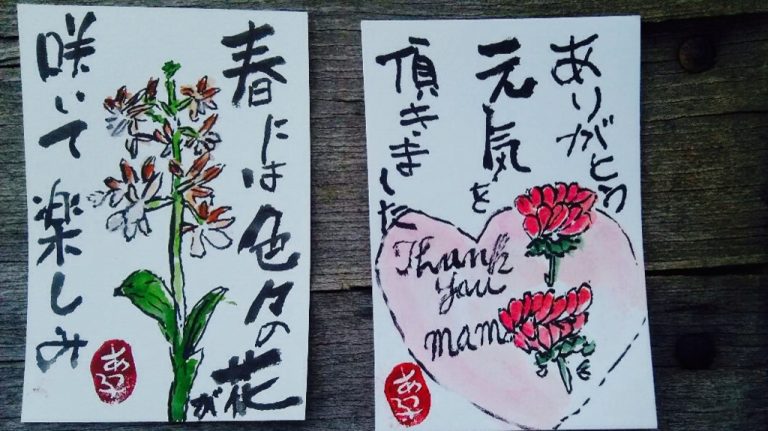 春には色々の花が
咲いて楽しみ
ありがとう
元気を
頂きました
Thank
you
mam